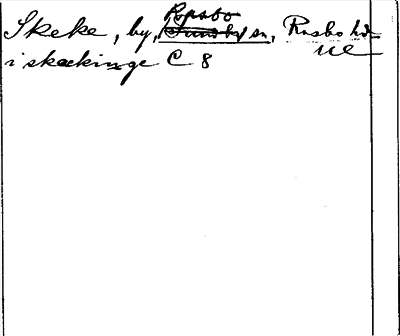 Rasbo
Skeke, by, Tuna sn, Rasbo hd
i skækinge C 8 ue